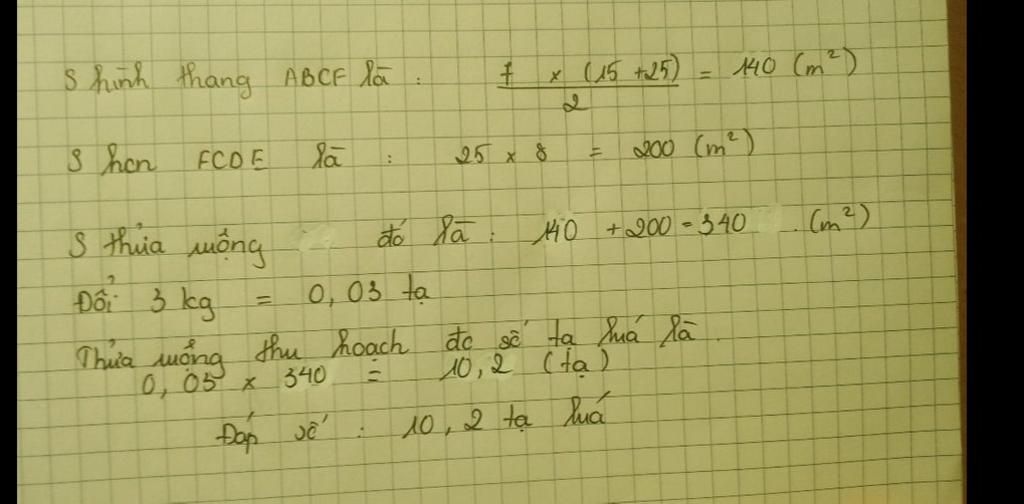 S hình thang ABCF là : 7 x (15 + 25) / 2 = 140 (m²)
S hcn FCDE là : 25 x 8 = 200 (m²)
S thửa ruộng đó là : 140 + 200 = 340 (m²)
Đổi 3 kg = 0,03 tạ
Thửa ruộng thu hoạch đc số tạ lúa là .
0,03 x 340 = 10,2 (tạ)
Đáp số : 10,2 tạ lúa